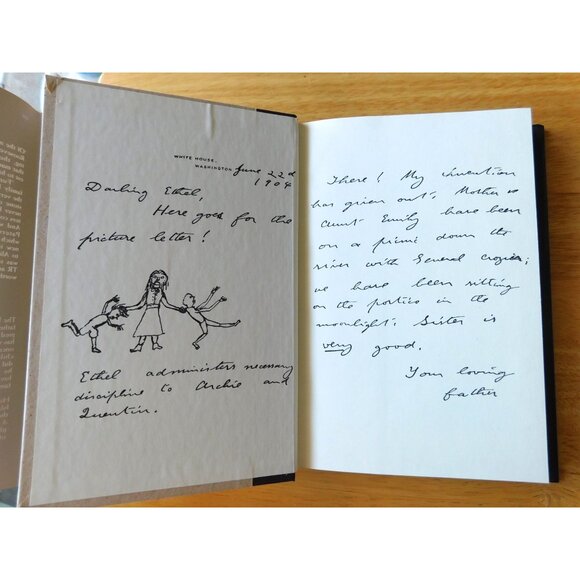 WHITE HOUSE,
WASHINGTON. June 22d
1904
Darling Ethel,
Here goes for the
picture letter!
Ethel administers necessary
discipline to Archie and
Quentin.
There! My invention
has given out. Mother &
Aunt Emily have been
on a picnic down the
river with General Crozier;
we have been sitting
on the portico in the
moonlight. Sister is
very good.
Your loving
father